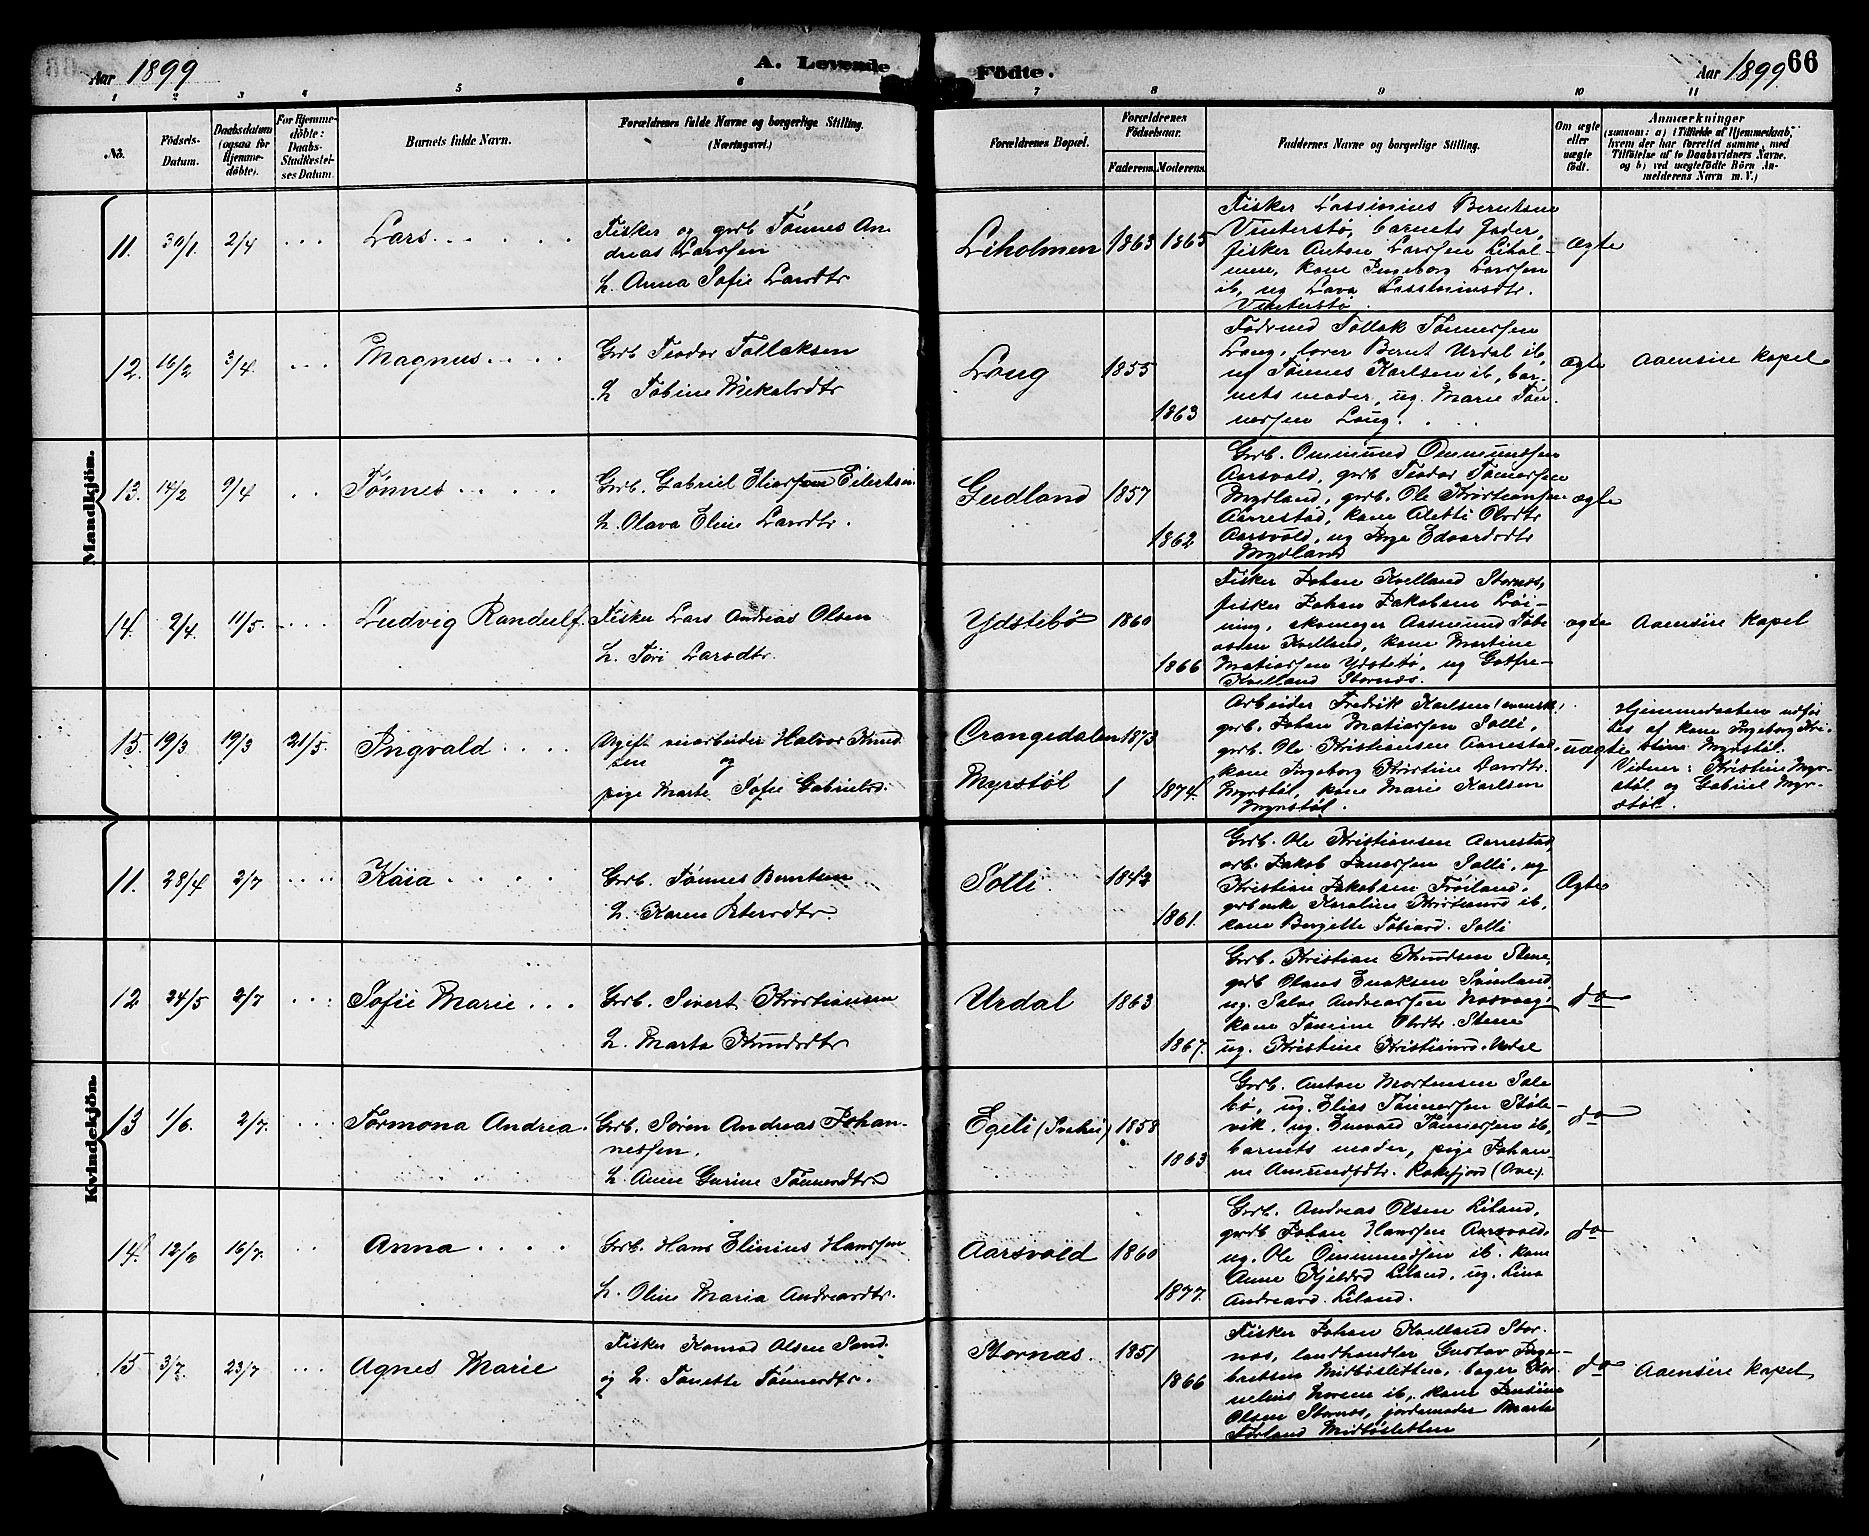 Aar 1899
A. Levende
Födte.
Aar 1899
66
1 2 3 4 5 6 7 8 9 10 11
No.
Födsels-
Datum.
Daabsdatum
(ogsaa for
Hjemme-
döbte).
For Hjemme-
döbte:
Daabs-
Stadfestel-
ses Datum.
Barnets fulde Navn.
Forældrenes fulde Navne og borgerlige Stilling.
(Næringsvei.)
Forældrenes Bopæl.
Forældrenes
Födselsaar.
Faderens
Moderens
Faddernes Navne og borgerlige Stilling.
Om ægte
eller
uægte
födt.
Anmærkninger
(saasom: a) i Tilfælde af Hjemmedaab,
hvem der har forrettet samme, med
Tilföielse af to Daabsvidners Navne.
og b) ved uægtefödte Börn An-
melderens Navn m. V.)
Mandkjön.
11. 30/1. 2/4 Lars
Fisker og grb Tønnes An-
dreas Larssen
h. Anna Sofie Larsdtr
Liholmen 1863 1865
Fisker Lassimius Berntsen
Vinterstø, barnets fader,
fisker Anton Larssen Lihol-
mene, kone Ingeborg Larssen
ib, ug Lava Lassiminsdtr.
Vinterstø.
ægte
12. 16/2 3/4 Magnus
Grb Teodor Tollaksen
h Tobine Mikalsdtr
Loug 1855
1863
Tollak Tønnessen
Loug, lærer Bernt Urdal ib,
ug Tønnes Karlsen ib, bar-
nets moder, ug. Marie Tøn-
nessen Loug.
ægte
Aaensire kapel
13. 14/2 9/4 Tønnes
Grb. Gabriel Eliassen Eilertsen
h. Olava Eline Larsdtr.
Gudland 1857
1862
Grb. Ommund Ommundsen
Aarsvold, grb Teodor Tønnessen
Mydland, grb. Ole Kristiansen
Aarrestad, kone Aletti Olsdtr
Aarsvold, ug Inge Edvardsdtr
Mydland
ægte
14. 9/4. 11/5. Ludvig Randulf.
Fisker Lars Andreas Olsen
h. Tøri Larsdtr.
Ydstebø 1860
1866
Fisker Johan Kvelland Stornæs,
fisker Johan Jakobsen Løi-
ning, skomager Aasmund Tobi-
assen Kvelland, kone Martine
Matiassen Ydstebø, ug Gotfre-
Kvelland Stornæs.
ægte
Aaensire kapel
15. 19/3 19/3 21/5. Ingvald
Ugift veiarbeider Halvor Knud-
sen og
pige Marte Sofie Gabrielsd.
Drangedalen 1873
Myrstøl 1874.
Arbeider Fredrik Karlsen (svensk),
grb. Johan Matiassen Solli,
grb. Ole Kristiansen Aarrestad,
kone Ingeborg Kristine Davidtr.
Myrstøl, kone Marie Karlsen
Myrstøl.
uægte
Hjemmedaaben udfør-
tes af kone Ingeborg Kri-
stine Myrstøl.
Vidner: Kristine Myr-
støl og Gabriel Myr-
støl.
Kvindekjön.
11. 28/4 2/7 Kaia
Grb. Tønnes Berntsen
h. Karen Petersdtr
Solli. 1842
1861.
Grb. Ole Kristiansen Aarrestad,
arb. Jakob Jonassen Solli, ug
Kristian Jakobsen Frøiland,
grbenke Karoline Kristiansd ib,
kone Bergitte Tobiasd. Solli
Ægte
12 24/5 2/7 Sofie Marie
Grb. Sivert Kristiansen
h. Marta Knudsdtr
Urdal 1863
1867.
Grb. Kristian Knudsen Stene,
grb Olaus Enoksen Sønland
ug. Salve Andreassen Hosvaag,
kone Tomine Olsdtr. Stene
ug. Kristine Kristiansd. Urdal
do
13 1/6. 2/7. Tormona Andrea.
Grb. Søren Andreas Johan-
nessen.
h. Anne Gurine Tønnesdtr.
Egeli 1858
1863
Grb. Anton Mortensen Sole-
bø, ug. Elias Tønnessen Støle-
vik, ug. Enevald Tønnessen ib,
barnets moder, pige Johan-
ne Amundsdtr. Rekefjord
do
14. 12/6 16/7. Anna
Grb. Hans Elinius Hanssen
h. Oline Maria Andreasdtr.
Aarsvold 1860
1877.
Grb. Andreas Olsen Liland,
grb Johan Hanssen Aarsvold,
ug. Ole Ommundsen ib. kone
Anne Kjelds Liland, ug. Lina
Andreasd. Liland.
do
15 3/7. 23/7 Agnes Marie
Fisker Konrad Olsen Sand
og h. Tonette Tønnesdtr.
Stornæs. 1851
1866
Fisker Johan Kvelland Stor-
næs, landhandler Gustav Inge-
bretsen Midbøsletten, bager Kor-
nelius Noreene ib, kone Jensine
Olsen Stornæs, jordemoder Marta
Førland Midbøsletten
do
Aaensire kapel